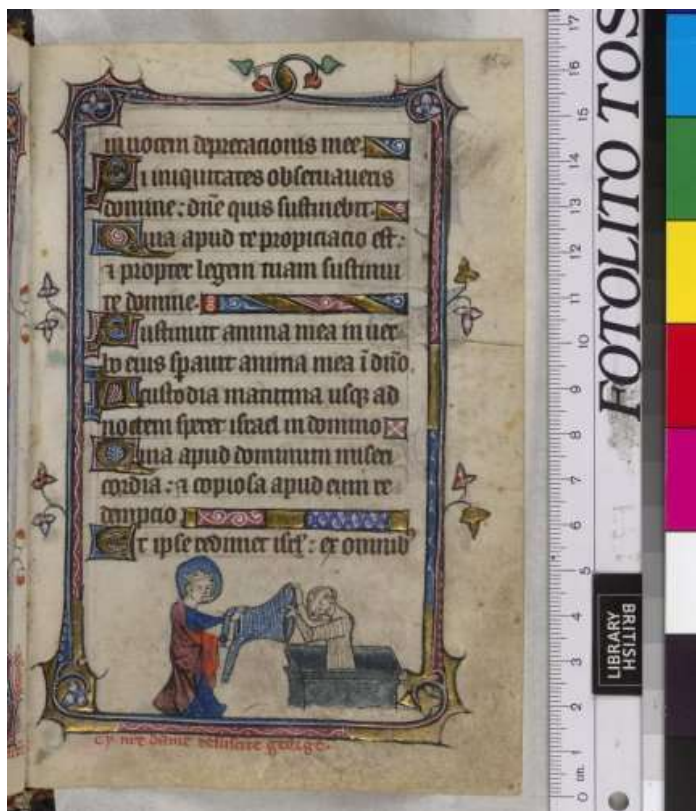 in uocem deprecacionis mee.
Si iniquitates obseruaueris
domine: dn̄e quis sustinebit.
Quia apud te propiciacio est:
⁊ propter legem tuam sustinui
te domine.
Sustinuit anima mea in uer
bo eius sꝑauit anima mea ī dn̄o.
A custodia matutina usqꝫ ad
noctem speret israel in domino
Quia apud dominum miseri
cordia: ⁊ copiosa apud eum re
dempcio.
Et ipse redimet isrł: ex omnibꝰ
cy nr̄e dame resuscite george.
FOTOLITO TOS
BRITISH
LIBRARY
17
16
15
14
13
12
11
10
9
8
7
6
5
4
3
2
1
0 cm.